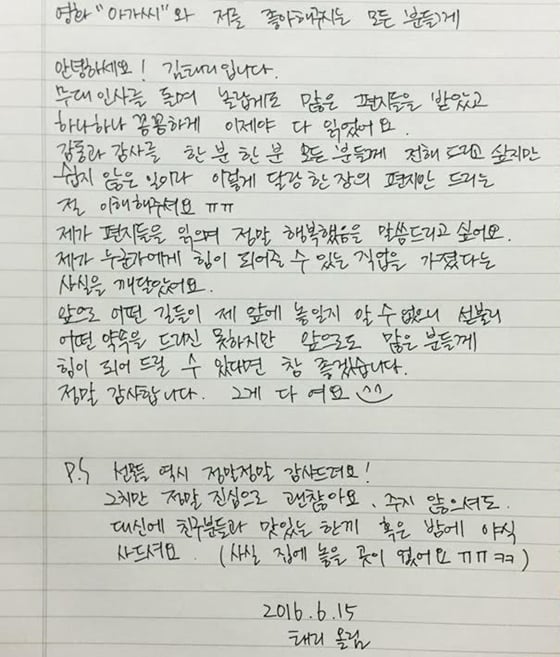 영화 "아가씨"와 저를 좋아해주시는 모든 분들께
안녕하세요! 김태리입니다.
무대인사를 돌며 놀랍게도 많은 편지들을 받았고
하나하나 꼼꼼하게 이제야 다 읽었어요.
감동과 감사를 한 분 한 분 모든 분들께 전해 드리고 싶지만
쉽지 않은 일이라 이렇게 달랑 한 장의 편지만 드리는
절 이해해주셔요 ㅠㅠ
제가 편지들을 읽으며 정말 행복했음을 말씀드리고 싶어요.
제가 누군가에게 힘이 되어줄 수 있는 직업을 가졌다는
사실을 깨달았어요.
앞으로 어떤 길들이 제 앞에 놓일지 알 수 없으니 섣불리
어떤 약속을 드리진 못하지만 앞으로도 많은 분들께
힘이 되어 드릴 수 있다면 참 좋겠습니다.
정말 감사합니다. 그게 다 여요 ^^
P.S 선물들 역시 정말정말 감사드려요!
그치만 정말 진심으로 괜찮아요, 주지 않으셔도.
대신에 친구분들과 맛있는 한끼 혹은 밤에 야식
사드셔요. (사실 집에 놓을 곳이 없어요 ㅠㅠ ㅋㅋ)
2016.6.15
태리 올림